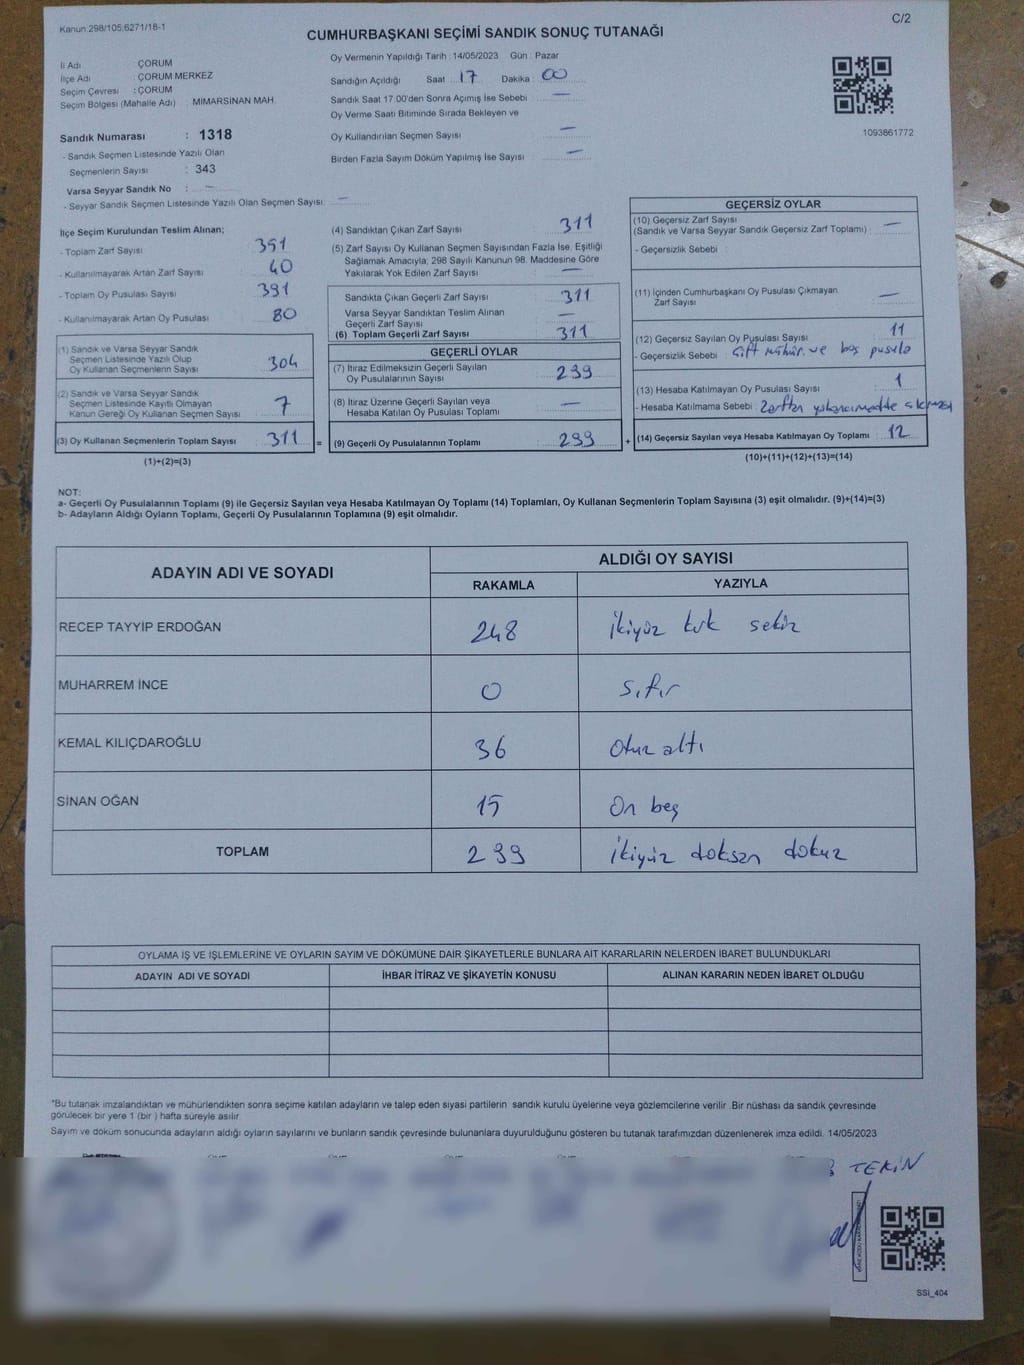 Kanun 298/105,6271/18-1
C/2
CUMHURBAŞKANI SEÇİMİ SANDIK SONUÇ TUTANAĞI
İl Adı : ÇORUM
İlçe Adı : ÇORUM MERKEZ
Seçim Çevresi : ÇORUM
Seçim Bölgesi (Mahalle Adı) : MİMARSİNAN MAH.
Sandık Numarası : 1318
- Sandık Seçmen Listesinde Yazılı Olan
Seçmenlerin Sayısı : 343
Varsa Seyyar Sandık No : —
- Seyyar Sandık Seçmen Listesinde Yazılı Olan Seçmen Sayısı: —
Oy Vermenin Yapıldığı Tarih : 14/05/2023 Gün : Pazar
Sandığın Açıldığı Saat : 17 Dakika : 00
Sandık Saat 17:00'den Sonra Açımış İse Sebebi : —
Oy Verme Saati Bitiminde Sırada Bekleyen ve
Oy Kullandırılan Seçmen Sayısı : —
Birden Fazla Sayım Döküm Yapılmış İse Sayısı : —
1093861772
İlçe Seçim Kurulundan Teslim Alınan;
- Toplam Zarf Sayısı : 351
- Kullanılmayarak Artan Zarf Sayısı : 40
- Toplam Oy Pusulası Sayısı : 391
- Kullanılmayarak Artan Oy Pusulası : 80
(1) Sandık ve Varsa Seyyar Sandık
Seçmen Listesinde Yazılı Olup
Oy Kullanan Seçmenlerin Sayısı : 304
(2) Sandık ve Varsa Seyyar Sandık
Seçmen Listesinde Kayıtlı Olmayan
Kanun Gereği Oy Kullanan Seçmen Sayısı : 7
(3) Oy Kullanan Seçmenlerin Toplam Sayısı : 311 =
(1)+(2)=(3)
(4) Sandıktan Çıkan Zarf Sayısı : 311
(5) Zarf Sayısı Oy Kullanan Seçmen Sayısından Fazla İse, Eşitliği
Sağlamak Amacıyla; 298 Sayılı Kanunun 98. Maddesine Göre
Yakılarak Yok Edilen Zarf Sayısı : —
Sandıkta Çıkan Geçerli Zarf Sayısı : 311
Varsa Seyyar Sandıktan Teslim Alınan
Geçerli Zarf Sayısı : —
(6) Toplam Geçerli Zarf Sayısı : 311
GEÇERLİ OYLAR
(7) İtiraz Edilmeksizin Geçerli Sayılan
Oy Pusulalarının Sayısı : 299
(8) İtiraz Üzerine Geçerli Sayılan veya
Hesaba Katılan Oy Pusulası Toplamı : —
(9) Geçerli Oy Pusulalarının Toplamı : 299 +
GEÇERSİZ OYLAR
(10) Geçersiz Zarf Sayısı
(Sandık ve Varsa Seyyar Sandık Geçersiz Zarf Toplamı) : —
- Geçersizlik Sebebi :
(11) İçinden Cumhurbaşkanı Oy Pusulası Çıkmayan
Zarf Sayısı : —
(12) Geçersiz Sayılan Oy Pusulası Sayısı : 11
- Geçersizlik Sebebi : Çift mühür ve boş pusula
(13) Hesaba Katılmayan Oy Pusulası Sayısı : 1
- Hesaba Katılmama Sebebi : Zarftan
(14) Geçersiz Sayılan veya Hesaba Katılmayan Oy Toplamı : 12
(10)+(11)+(12)+(13)=(14)
NOT:
a- Geçerli Oy Pusulalarının Toplamı (9) ile Geçersiz Sayılan veya Hesaba Katılmayan Oy Toplamı (14) Toplamları, Oy Kullanan Seçmenlerin Toplam Sayısına (3) eşit olmalıdır. (9)+(14)=(3)
b- Adayların Aldığı Oyların Toplamı, Geçerli Oy Pusulalarının Toplamına (9) eşit olmalıdır.
ADAYIN ADI VE SOYADI
ALDIĞI OY SAYISI
RAKAMLA YAZIYLA
RECEP TAYYİP ERDOĞAN 248 ikiyüz kırk sekiz
MUHARREM İNCE 0 sıfır
KEMAL KILIÇDAROĞLU 36 otuz altı
SİNAN OĞAN 15 on beş
TOPLAM 299 ikiyüz doksan dokuz
OYLAMA İŞ VE İŞLEMLERİNE VE OYLARIN SAYIM VE DÖKÜMÜNE DAİR ŞİKAYETLERLE BUNLARA AİT KARARLARIN NELERDEN İBARET BULUNDUKLARI
ADAYIN ADI VE SOYADI İHBAR İTİRAZ VE ŞİKAYETİN KONUSU ALINAN KARARIN NEDEN İBARET OLDUĞU
"Bu tutanak imzalandıktan ve mühürlendikten sonra seçime katılan adayların ve talep eden siyasi partilerin sandık kurulu üyelerine veya gözlemcilerine verilir. Bir nüshası da sandık çevresinde
görülecek bir yere 1 (bir ) hafta süreyle asılır.
Sayım ve döküm sonucunda adayların aldığı oyların sayılarını ve bunların sandık çevresinde bulunanlara duyurulduğunu gösteren bu tutanak tarafımızdan düzenlenerek imza edildi. 14/05/2023
TEKİN
SSİ_404